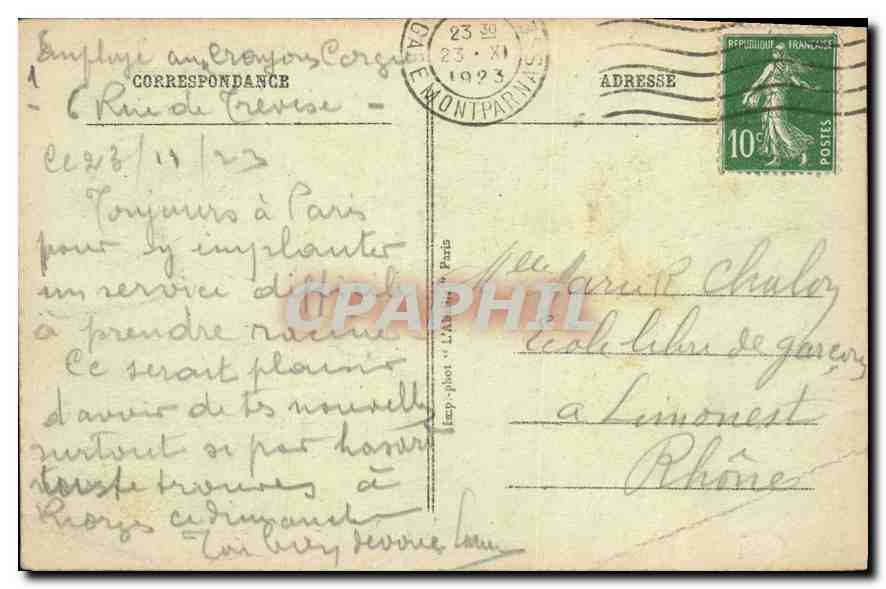 Employé aux Crayons
CORRESPONDANCE
6 Rue de Trevise -
Ce 23/11/23
Toujours à Paris
pour y implanter
un service difficile
à prendre racine
Ce serait plaisir
d'avoir de tes nouvelles
surtout si par hasard
te trouves à
ce dimanche
Ton bien dévoué
Imp.-phot " L'A " Paris
23 30
23 · XI
1923
GARE MONTPARNASSE
ADRESSE
REPUBLIQUE FRANÇAISE
10c
POSTES
Melle Marie R Chalon
Ecole libre de garçons
a Limonest
Rhône
CPAPHIL